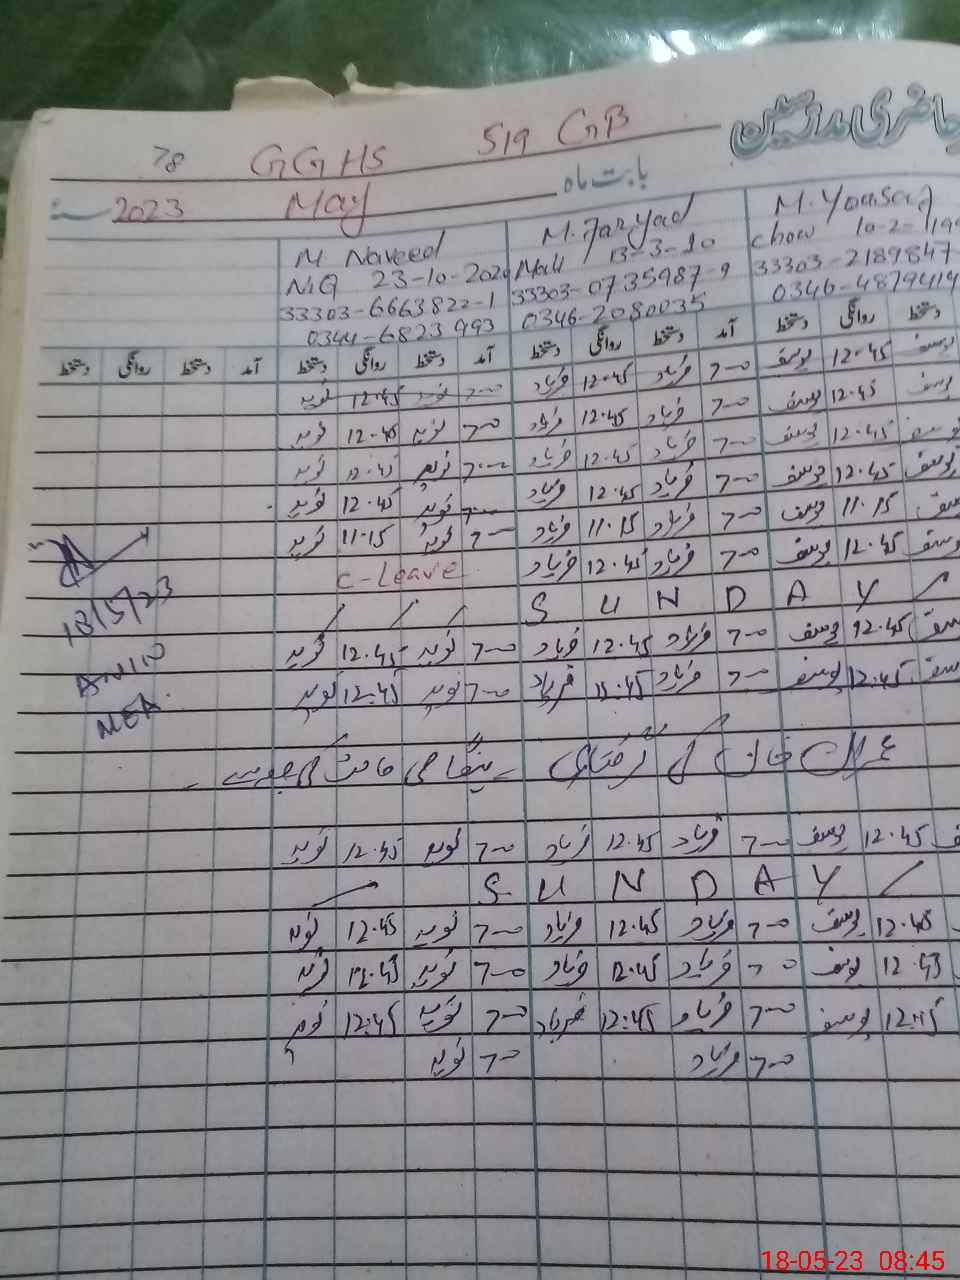 حاضری مدرسین
78 GGHS 519 GB
بابت ماہ May 2023
M. Yousaf M. Faryad M Naveed
Chow 10-2-199 Mali 13-3-20 N.Q 23-10-2020
33303-2189847 33303-0735987-9 33303-6663822-1
0346-4879419 0346-2080035 0344-6823993
دستخط روانگی دستخط آمد دستخط روانگی دستخط آمد دستخط روانگی دستخط آمد دستخط روانگی دستخط
یوسف 12.45 یوسف 7-00 فریاد 12.45 فریاد 7-00 نوید 12.45 نوید
یوسف 12.45 یوسف 7-00 فریاد 12.45 فریاد 7-00 نوید 12.45 نوید
یوسف 12.45 یوسف 7-00 فریاد 12.45 فریاد 7-00 نوید 12.45 نوید
یوسف 12.45 یوسف 7-00 فریاد 12.45 فریاد 7-00 نوید 12.45 نوید
یوسف 11.15 یوسف 7-00 فریاد 11.15 فریاد 7-00 نوید 11.15 نوید
یوسف 12.45 یوسف 7-00 فریاد 12.45 فریاد C-Leave
S U N D A Y
یوسف 12.45 یوسف 7-00 فریاد 12.45 فریاد 7-00 نوید 12.45 نوید
یوسف 12.45 یوسف 7-00 فریاد 12.45 فریاد 7-00 نوید 12:45 نوید
عمران خان کی گرفتاری ہنگامی حالت کی وجہ سے
یوسف 12.45 یوسف 7-00 فریاد 12.45 فریاد 7-00 نوید 12.45 نوید
S U N D A Y
12.45 یوسف 7-00 فریاد 12.45 فریاد 7-00 نوید 12.45 نوید
12.45 یوسف 7-00 فریاد 12.45 فریاد 7-00 نوید 12.45 نوید
12:45 یوسف 7-00 فریاد 12:45 فریاد 7-00 نوید 12:45 نوید
7-00 فریاد 7-00 نوید
18/5/23
AMIN
MEA
18-05-23 08:45